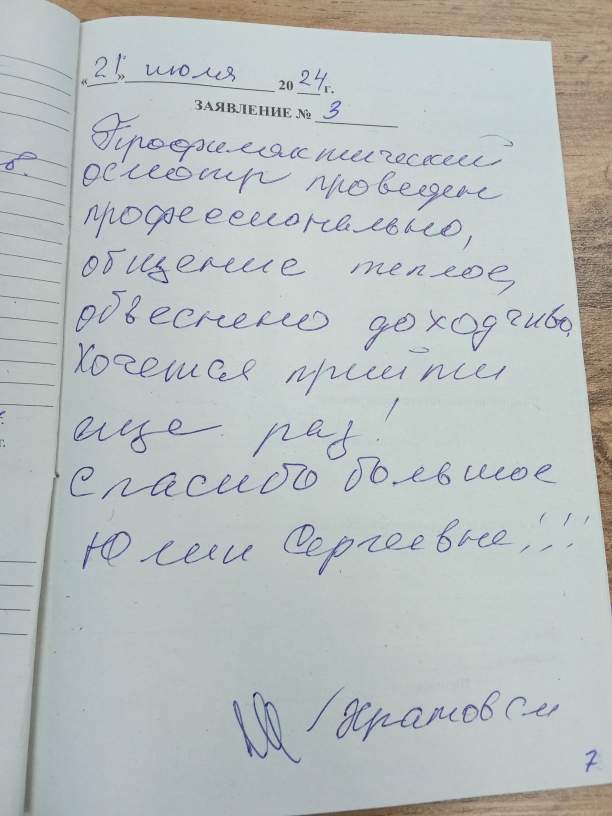 «21» июля 2024 г.
ЗАЯВЛЕНИЕ № 3
Профилактический
осмотр проведен
профессионально,
общение теплое,
обьеснено доходчиво.
Хочется прийти
еще раз!
Спасибо большое
Юлии Сергеевне!!!
7